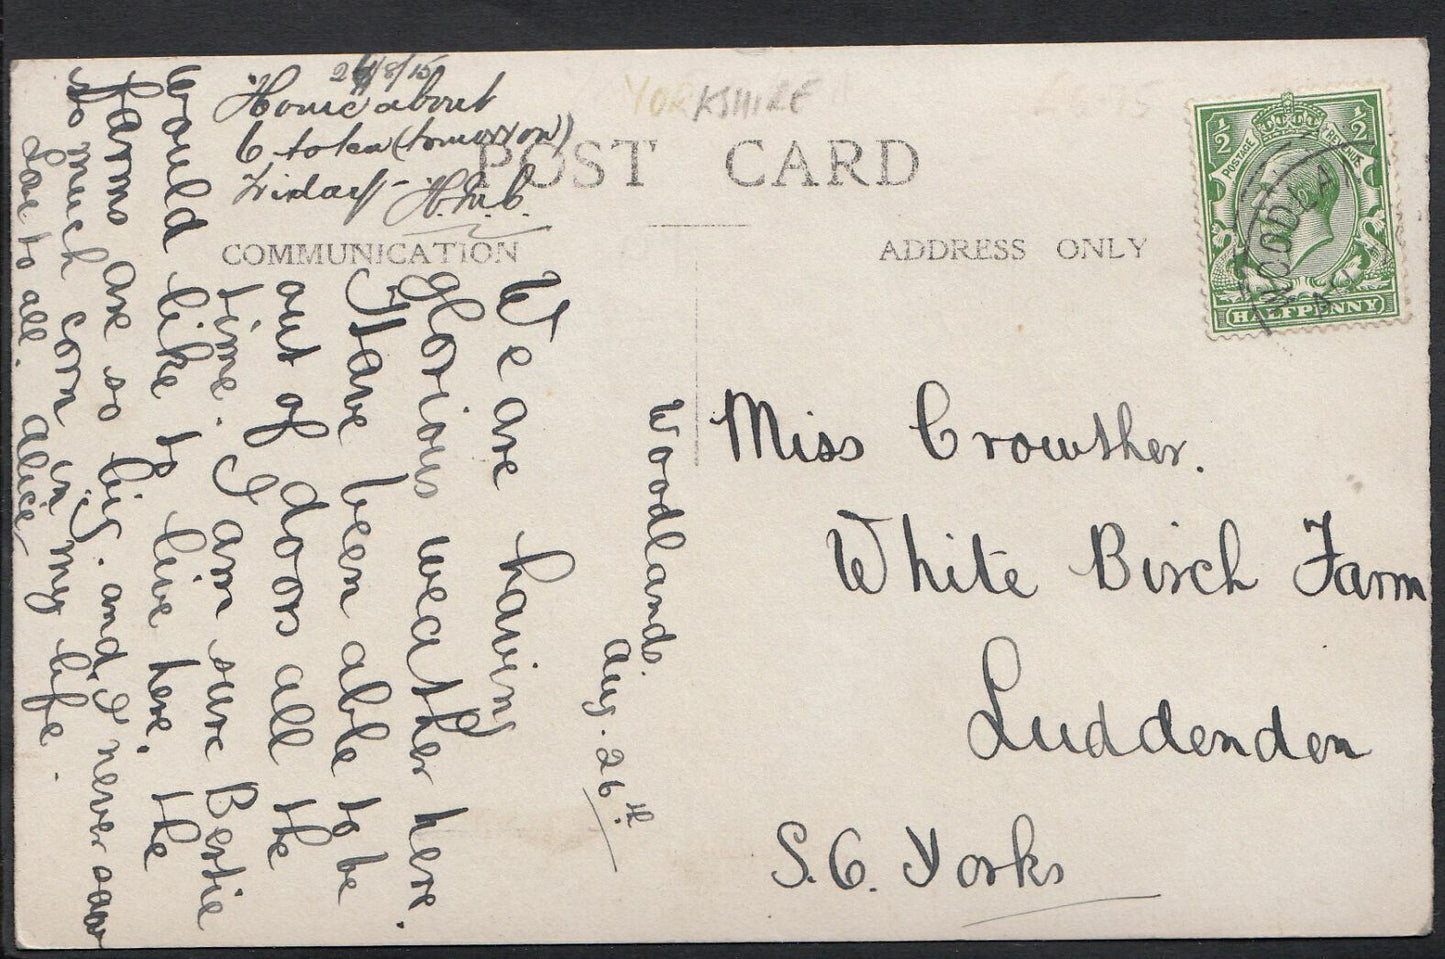 26/8/15
Home about
6 to tea (tomorrow)
Friday - H.M.C.
YORKSHIRE
POST CARD
COMMUNICATION
ADDRESS ONLY
½ ½
POSTAGE REVENUE
HALFPENNY
WOODLA
AU
Woodlands.
Aug. 26th.
We are having
glorious weather here.
Have been able to be
out of doors all the
time. I am sure Bertie
would like to live here, the
farms are so big. and I never saw
so much corn in my life.
Love to all. Alice
Miss Crowther.
White Birch Farm
Luddenden
S.O. Yorks